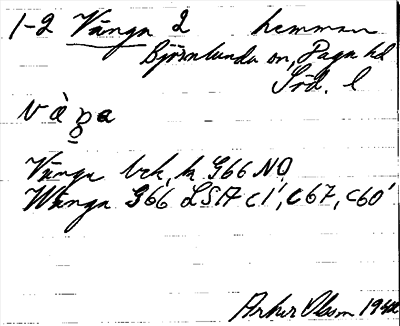 1-2 Vånga 2 hemman
Björnlunda sn, Daga hd
Söd. l
våŋa
Vånga bck, h G66 NO,
Wånga G66 LSA c1', c67, c60'
Olson